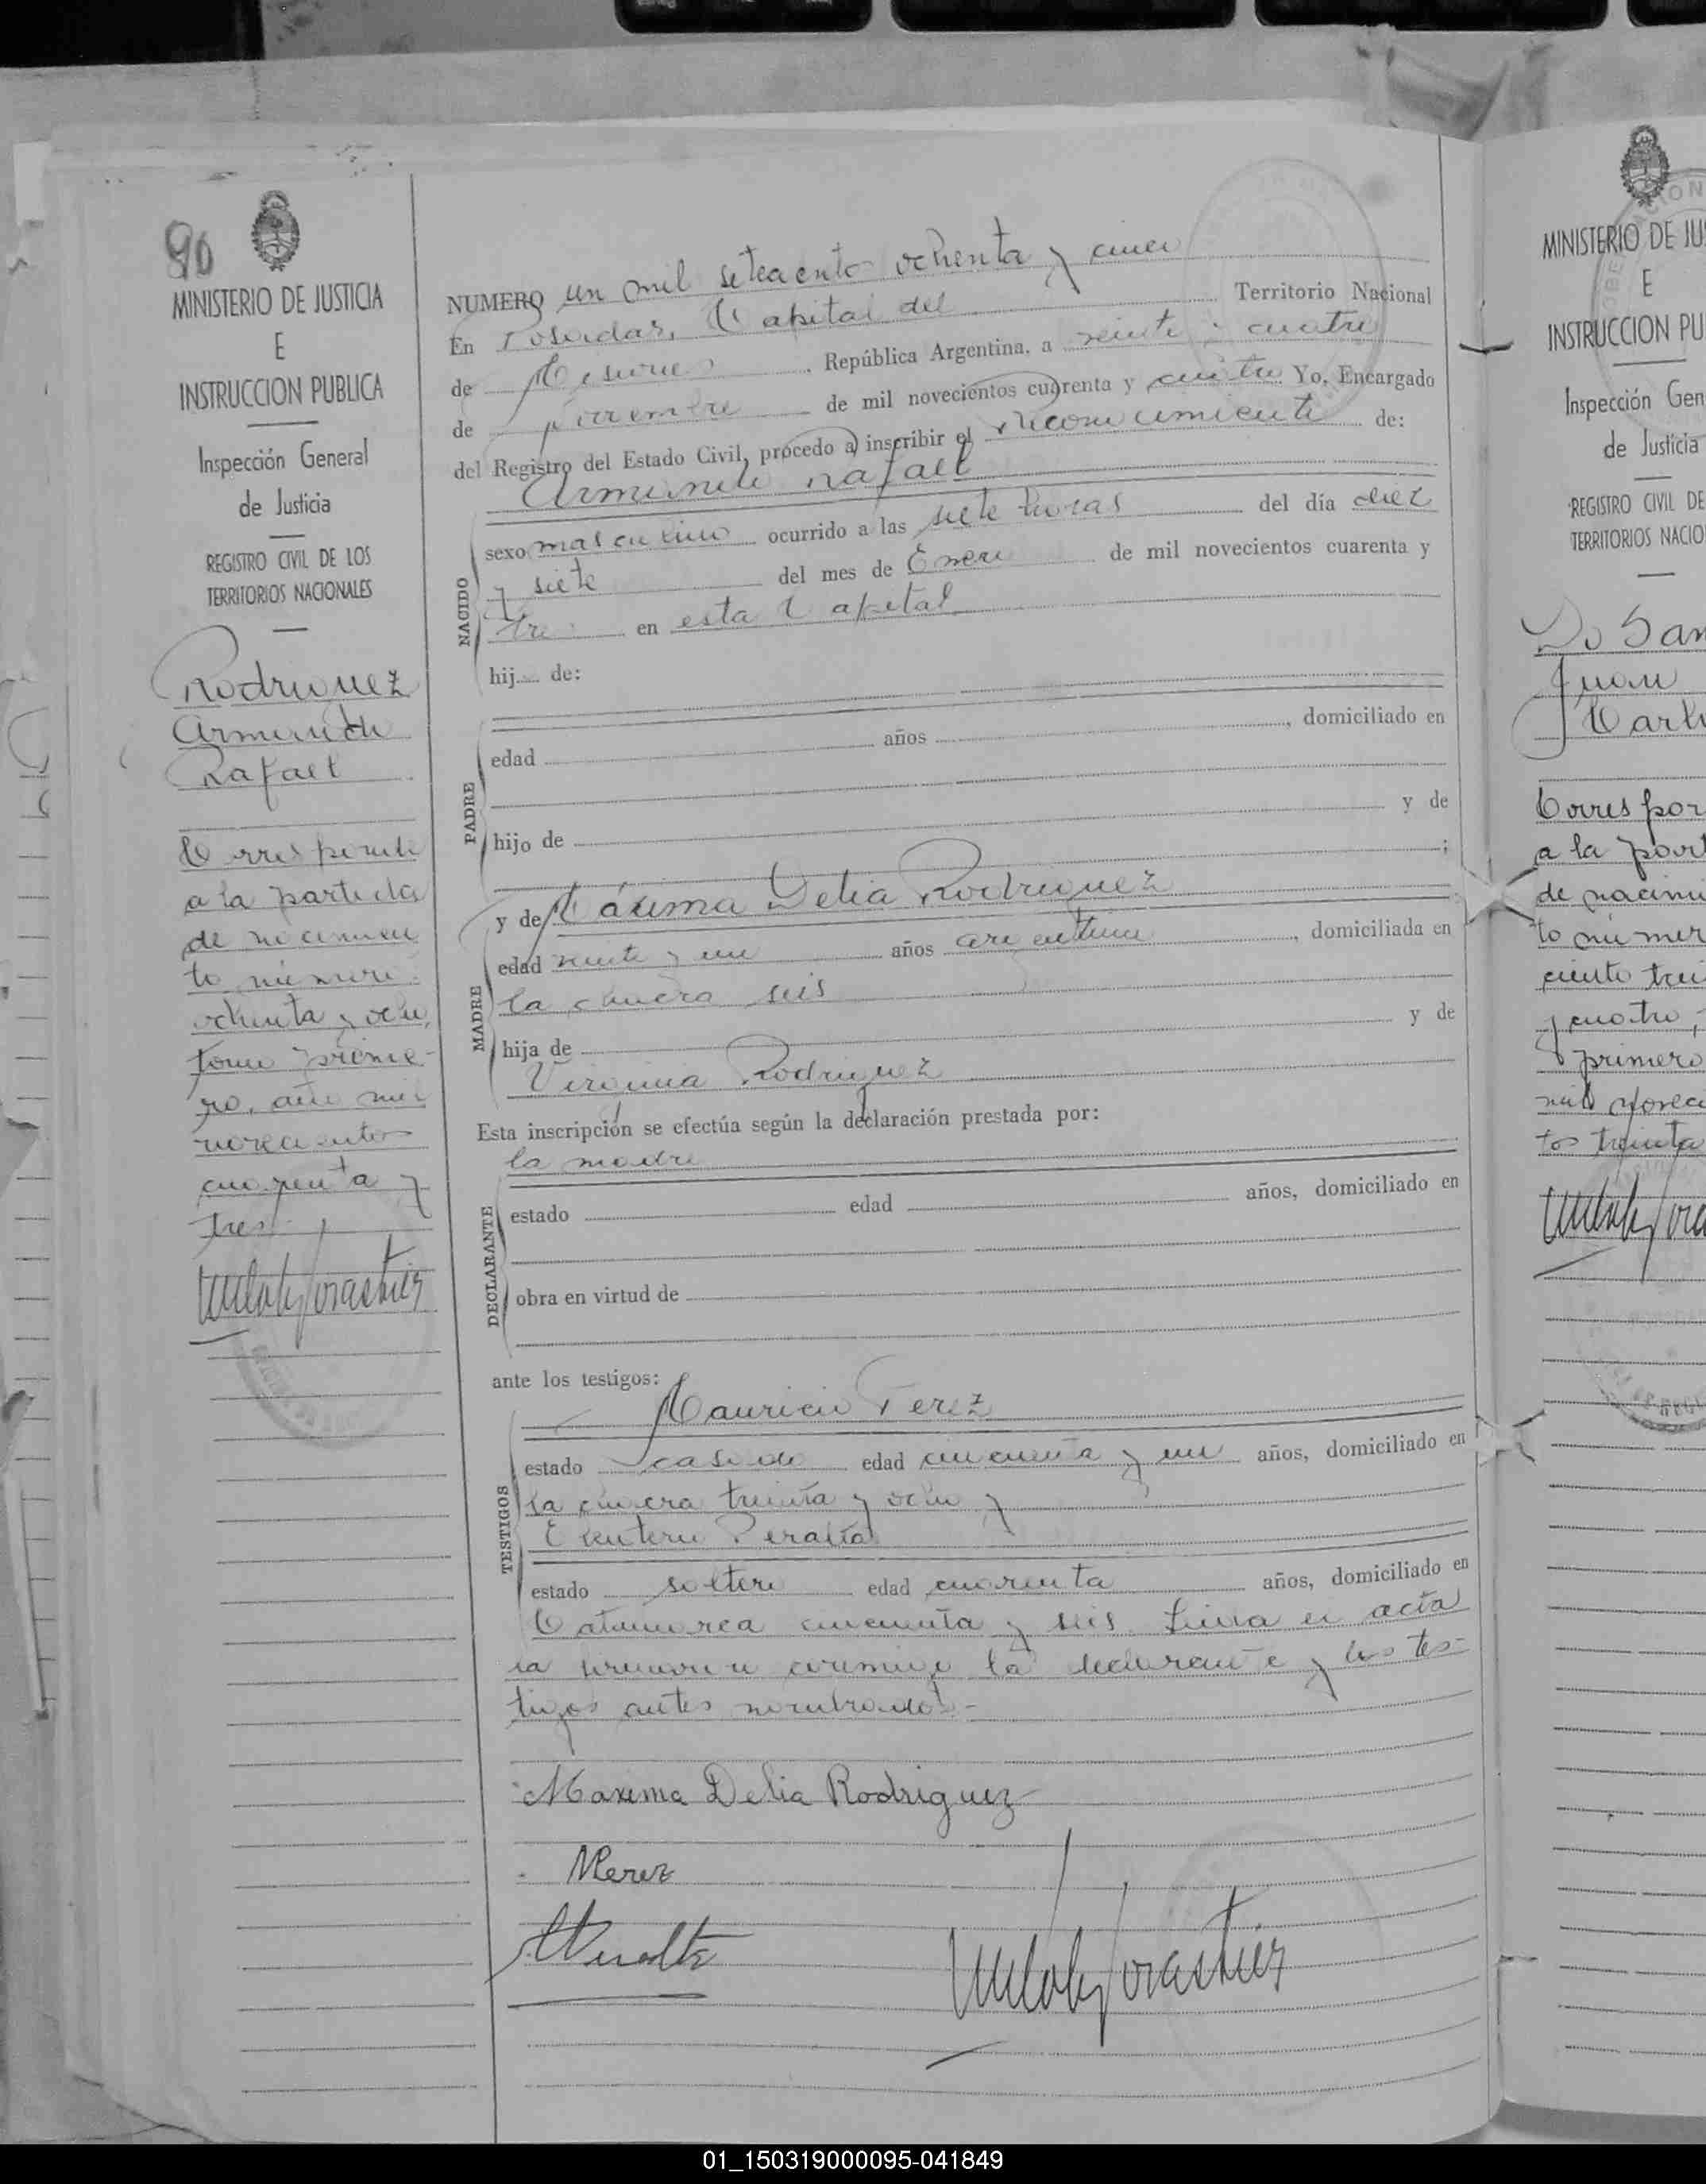 90
MINISTERIO DE JUSTICIA
E
INSTRUCCION PUBLICA
Inspección General
de Justicia
REGISTRO CIVIL DE LOS
TERRITORIOS NACIONALES
Rodriguez
Armindo
Rafael
Corresponde
a la partida
de nacimien
to número
ochenta y ocho,
tomo prime-
ro, año mil
novecientos
cuarenta y
tres.
NUMERO un mil setecientos ochenta y cinco
En Posadas, Capital del Territorio Nacional
de Misiones, República Argentina, a veinte y cuatro
de noviembre de mil novecientos cuarenta y cuatro Yo, Encargado
del Registro del Estado Civil, procedo a inscribir el reconocimiento de:
Armindo Rafael
NACIDO
sexo masculino ocurrido a las siete horas del día diez
y siete del mes de Enero de mil novecientos cuarenta y
tres en esta Capital
hij.... de:
PADRE
edad años , domiciliado en
hijo de y de
;
MADRE
y de Máxima Delia Rodriguez
edad veinte y un años argentina, domiciliada en
la chacra seis
hija de y de
Virginia Rodriguez
Esta inscripción se efectúa según la declaración prestada por:
la madre
DECLARANTE
estado edad años, domiciliado en
obra en virtud de
ante los testigos:
Mauricio Perez
TESTIGOS
estado casado edad cincuenta y un años, domiciliado en
la chacra treinta y ocho y
Eleuterio Peralta
estado soltero edad cuarenta años, domiciliado en
Catamarca cincuenta y seis. Leida el acta
la firmaron conmigo la declarante y los tes-
tigos antes nombrados.-
Maxima Delia Rodriguez
MPerez
MINISTERIO DE JUS
E
INSTRUCCION PU
Inspección Gen
de Justicia
REGISTRO CIVIL DE
TERRITORIOS NACIO
Do San
Juan
Carl
Correspon
a la part
de nacimi
to númer
ciento trei
y cuatro,
primero
mil novec
tos treinta
01_150319000095-041849